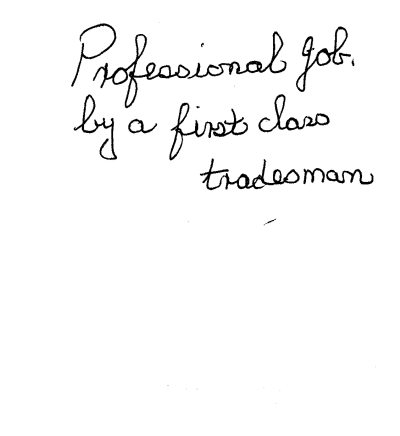 Professional job.
by a first class
tradesman